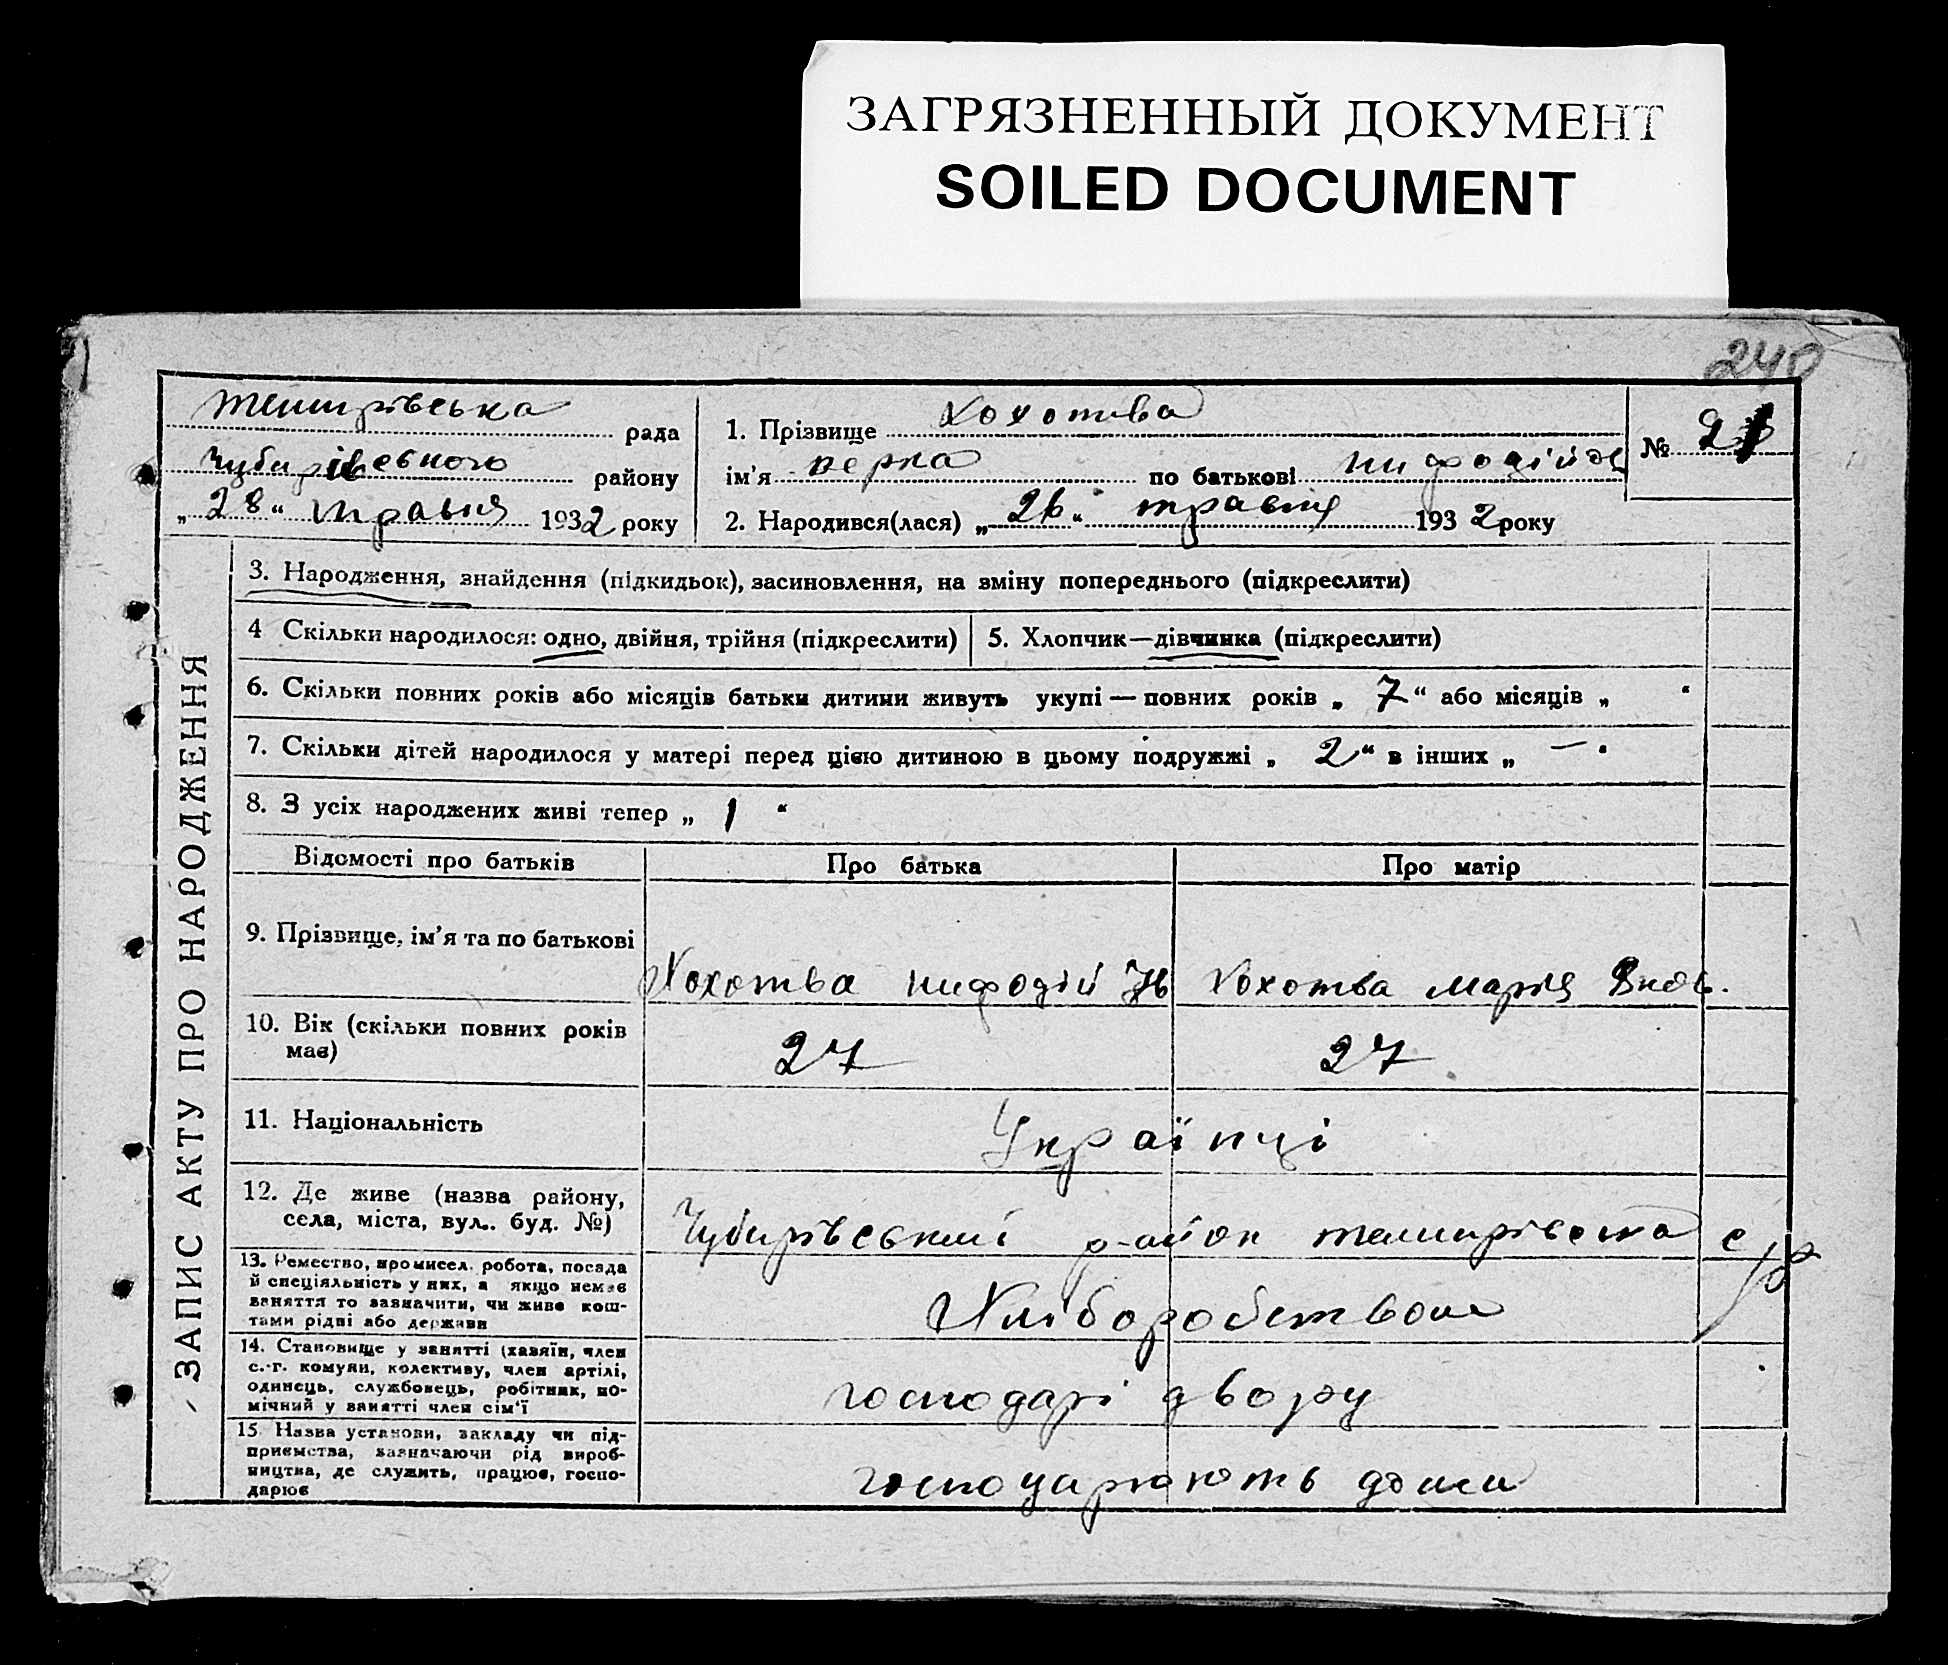 ЗАГРЯЗНЕННЫЙ ДОКУМЕНТ
SOILED DOCUMENT
240
рада
району
„28“ травня 1932 року
1. Прізвище Хохотва
ім'я по батькові
2. Народився(лася) „26“ травня 1932 року
№
ЗАПИС АКТУ ПРО НАРОДЖЕННЯ
3. Народження, знайдення (підкидьок), засиновлення, на зміну попереднього (підкреслити)
4 Скільки народилося: одно, двійня, трійня (підкреслити)
5. Хлопчик—дівчинка (підкреслити)
6. Скільки повних років або місяців батьки дитини живуть укупі — повних років „ 7 “ або місяців „ “
7. Скільки дітей народилося у матері перед цією дитиною в цьому подружжі „ 2 “ в інших „ — “
8. З усіх народжених живі тепер „ 1 “
Відомості про батьків
Про батька
Про матір
9. Прізвище, ім'я та по батькові
Хохотва Нифодій Ів
Хохотва Марія
10. Вік (скільки повних років
має)
27
27
11. Національність
Українці
12. Де живе (назва району,
села, міста, вул.. буд. №)
район с/р
13. Ремество, промисел, робота, посада
й спеціяльність у них, а якщо немає
заняття то зазначити, чи живе кош-
тами рідні або держави
Хліборобством
14. Становище у занятті (хазяїн, член
с.-г. комуни, колективу, член артілі,
одинець, службовець, робітник, по-
мічний у занятті член сім'ї
господарі двору
15. Назва установи, закладу чи під-
приємства, зазначаючи рід вироб-
ництва, де служить, працює, госпо-
дарює
господарюють дома